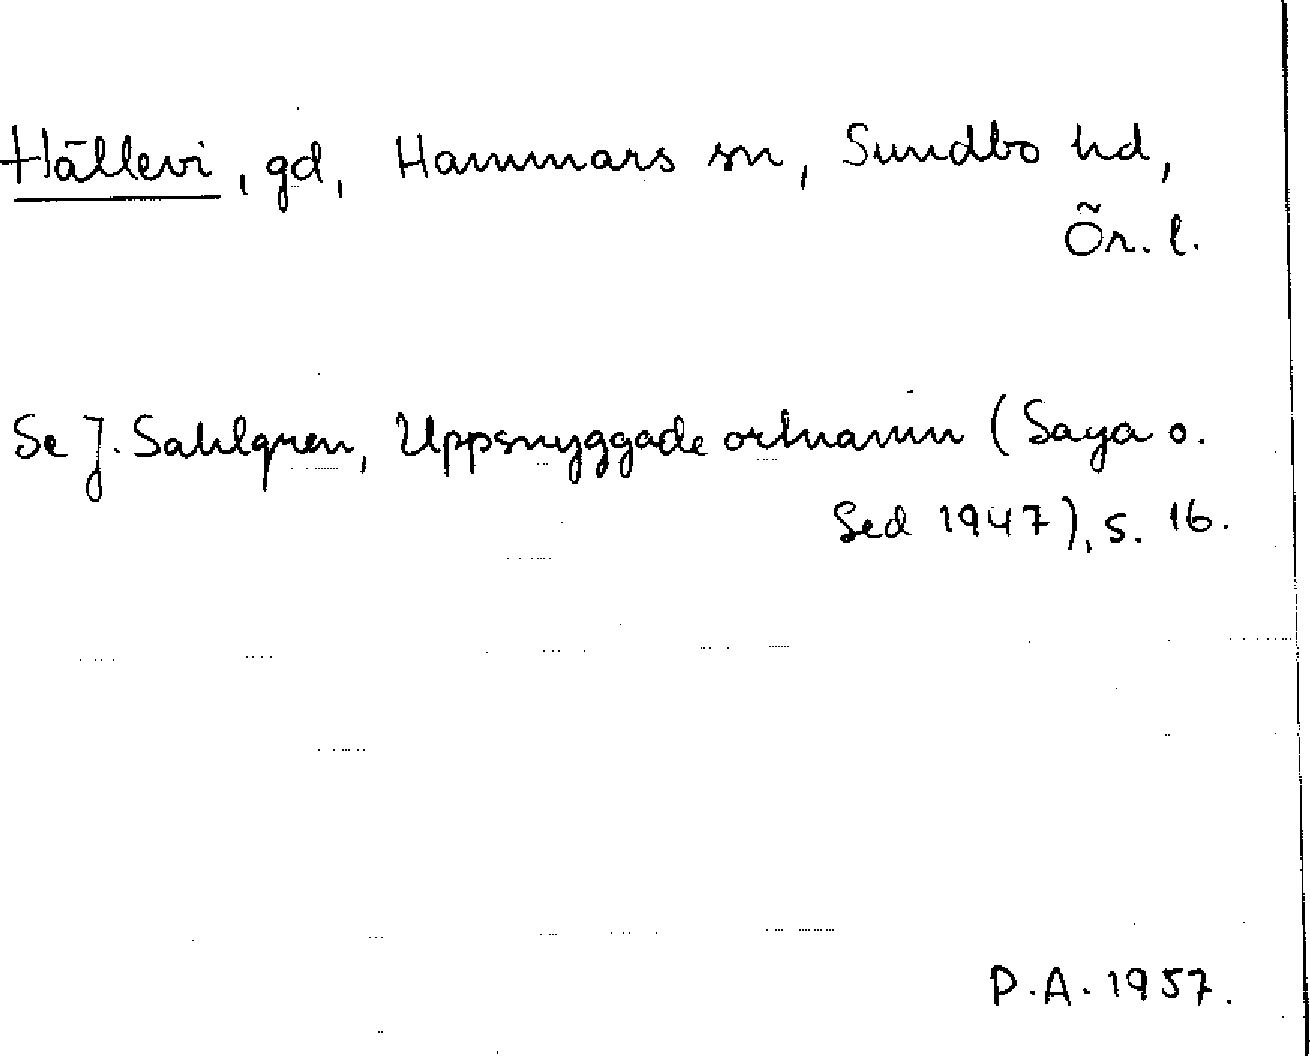 Hällevi, gd, Hammars sn, Sundbo hd,
Ör. l.
Se J. Sahlgren, Uppsnyggade ortnamn (Saga o.
Sed 1947), s. 16.
P.A. 1957.